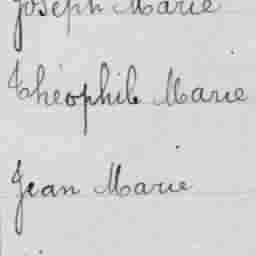 Joseph Marie
Théophile Marie
Jean Marie